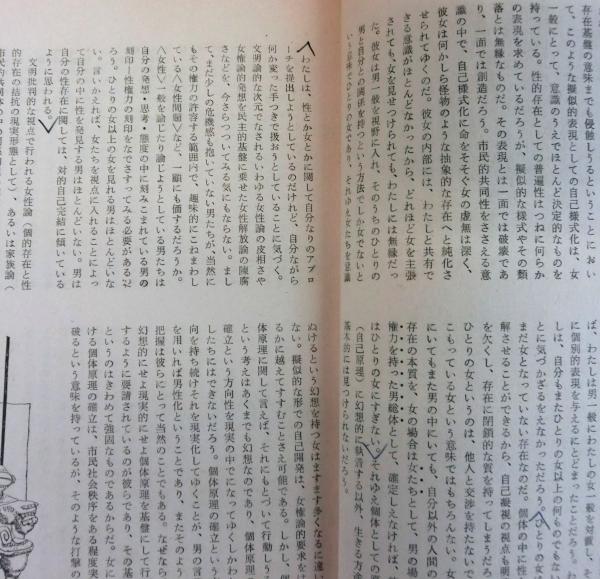 存在基盤の意味までも侵触しうるということにおい
て、このような擬似的表現としての自己様式化は、女
一般にとって、意識のうえでほとんど決定的なものを
持っている。性的存在としての普遍性はつねに何らか
の表現を求めているだろうが、擬似的な様式やその類
落とは無縁なものだ。その表現とは一面では破壊であ
り、一面では創造だろう。市民的共同性をささえる意
識の中で、自己様式化に命をそそぐ女の虚無は深く、
彼女は何かしら怪物のような抽象的な存在へと純化さ
せられてゆくのだ。彼女の内部には、わたしと共有で
きる意識がほとんどなかったから、どれほど女を主張
されても、女を見せつけられても、わたしには無縁だっ
た。彼女は男一般を視野に入れ、そのうちのひとりの
男と自分との関係を持つという方法でしか女でないと
しは、男は一般にわたしの女を放置し、
に個別的表現を与えることにとまったことだろう。わ
しは、自分もまたひとりの女以上の何ものでもな
とに気づかざるをえなかっただろう。ひとりの女
まだ女となっていない存在なのだ。個体の中に性
解させることができるから、自己凝視の視点も明
を欠くし、存在に閉鎖的な質を持ってしまうだろ
ひとりの女というのは、他人と交渉を持たないで
こもっている女という意味ではもちろんない。女
にいてもまた男の中にいても、自分以外の人間の
存在の本質を、女の場合は女たちとして、男の場
権力を持った男総体として、確定しえなければ、彼
はひとりの女にすぎない。それゆえ個体としての愛
（自己原理）に幻想的に執着する以外、生きる方途
基本的には見つけられないだろう。
わたしは、性とか女とかに関して自分なりのアプロ
ーチを提出しようとしているのだけれど、自分ながら
何か変った手つきで扱おうとしていることに気づく。
文明論的な次元でなされるいわゆる女性論の皮相さや
女権論的発想を民主的基盤に乗せた女性解放論の陳腐
さなどを、今さらつついてみる気にもならない。まし
て、まだ少しの危機感も抱いていない男たちが、当然に
もその権力の許容する範囲内で、趣味的にこねまわし
ている〈女性問題〉など、一顧にも価するだろうか。
〈女性〉一般を論じたり論じようとしている男たちは
自分の発想・思考・態度の中に刻みこまれている男の
刻印＝性権力の刻印をなでさすってみる必要がある？
ろう。ひとりの女以上の女を見れる男はほとんどいな
い。言いかえれば、女たちを視点に入れることによっ
て自分の中に性を発見する男はほとんどいない。男は
自分の性存在に関しては、対的自己完結に傾いている
ように思われる。
文明批判的な視点で行われる女性論、個的存在と性
的存在の拮抗の現実形態として、あるいは家族論（
ぬけるという幻想を持つ女はますます多くなるに違い
ない。擬似的な形での自己開発は、女権論的要求をは
るかに越えてすすむことさえ可能である。しかし、個
体原理に関して言えば、それにもとづいて行動しうる
という考えはあくまでも幻想なのであり、個体原理の
確立という方向性を現実の中でになってゆくしかわた
したちにはできないだろう。個体原理の確立という方
向を持ち続けそれを現実化してゆくことが、男の言葉
を用いれば男性化ということであり、またそのような
把握は彼らにとって当然のことでもある。なぜなら、
幻想的にせよ現実的にせよ個体原理を基盤にして行動
するように要請されているのが彼らであり、その基盤
というのはきわめて強固なものであるからだ。女にお
ける個体原理の確立は、市民社会秩序をある程度突き
破るという意味を持っているが、そのような打撃の